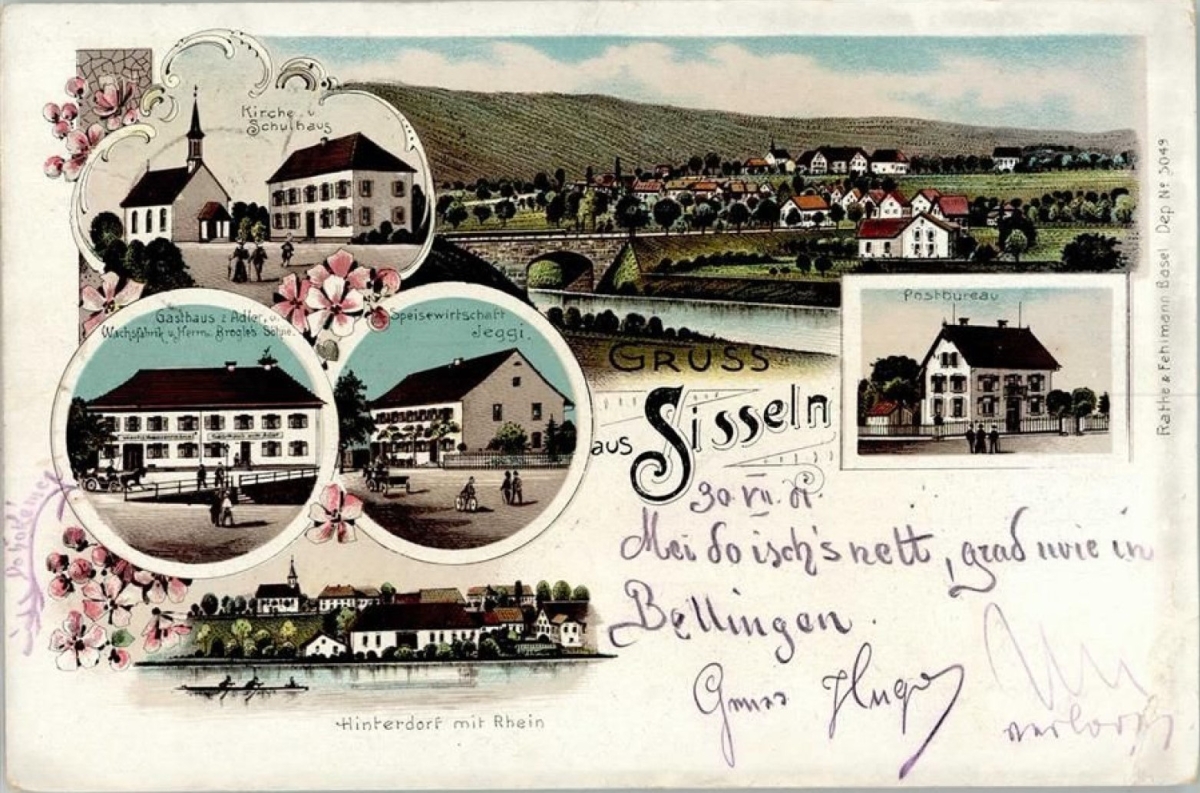 Kirche u.
Schulhaus
Gasthaus z Adler, u.
Wachsfabrik v. Herrn. Brogle's Söhne.
Speisewirtschaft
Jeggi.
Postbureau
GRUSS
aus Sisseln
30. VII. 01.
Mei do isch's nett, grad wie in
Bellingen.
Gruss Hugo
verlore
Hinterdorf mit Rhein
Rathe & Fehlmann Basel Dep. No 5049